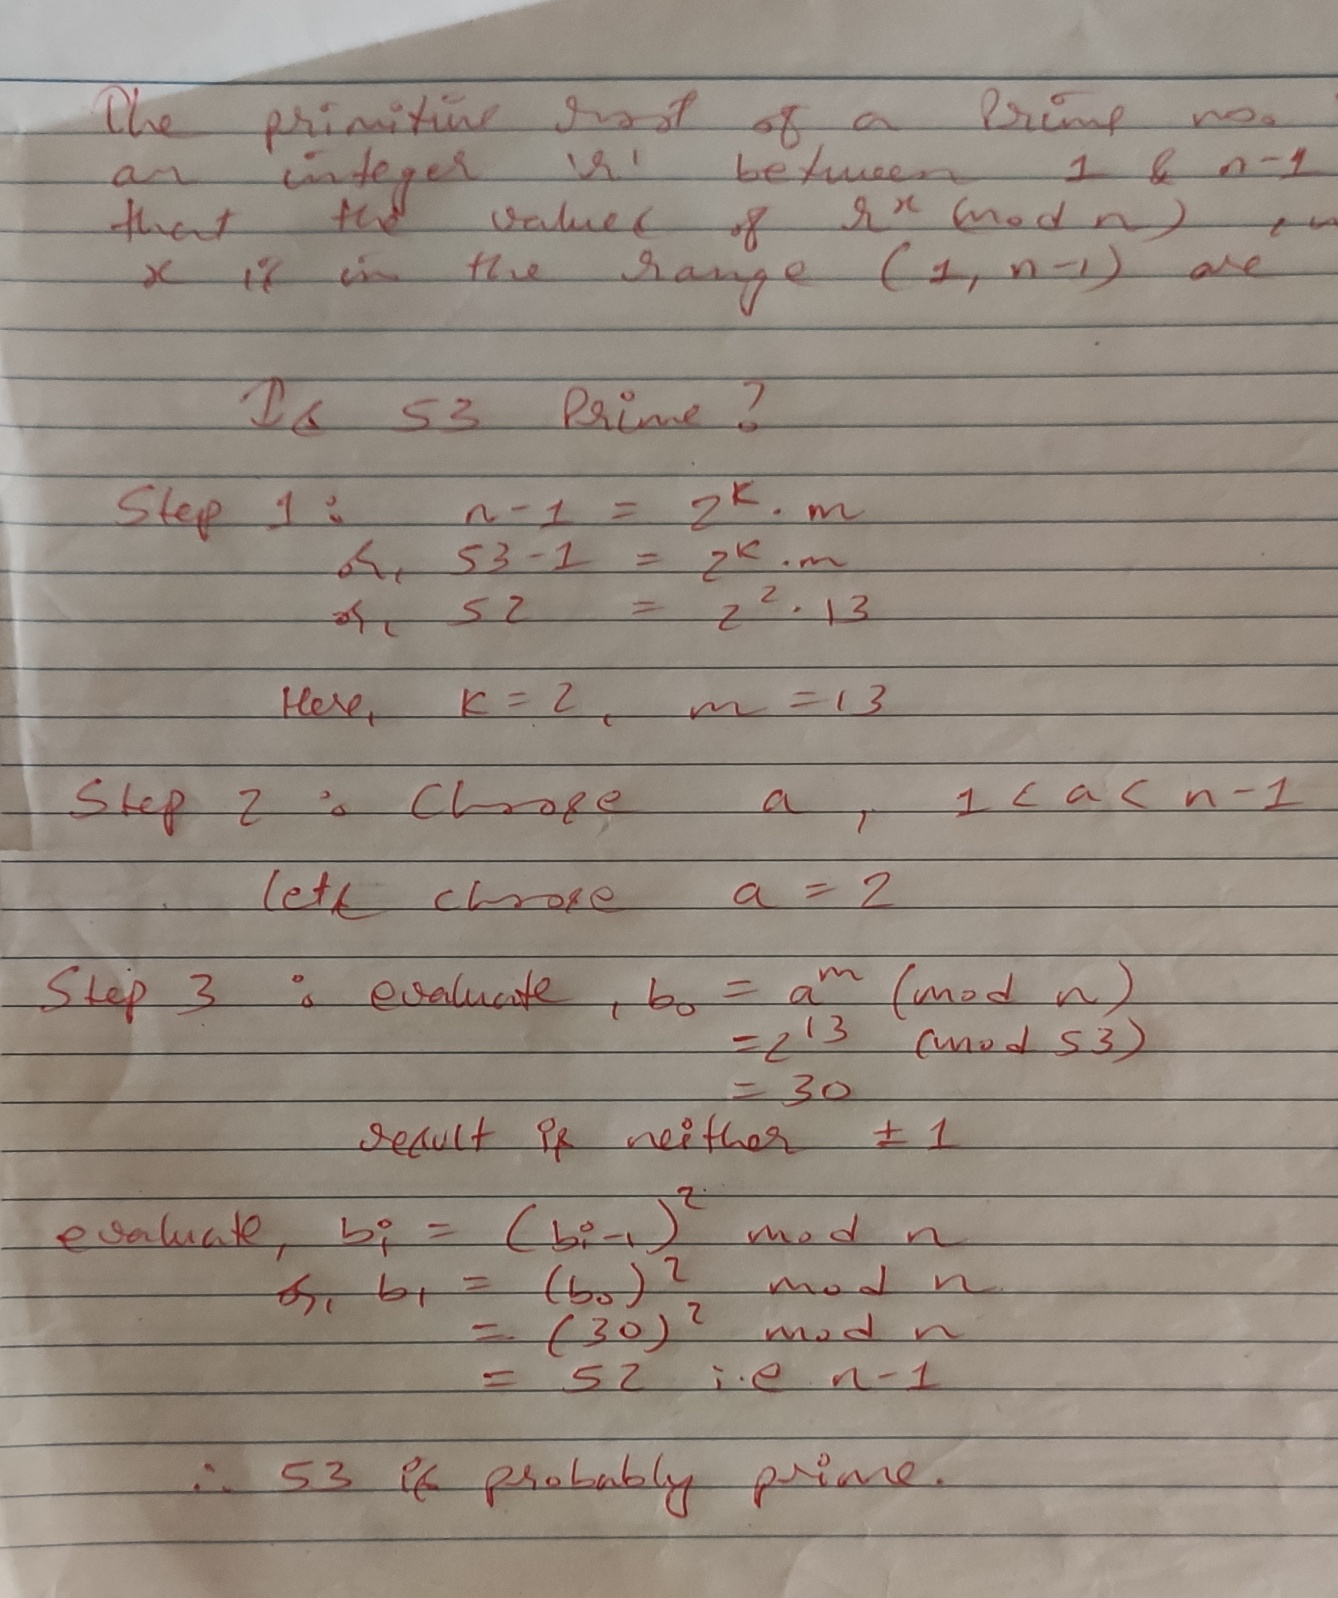 The primitive root of a Prime no.
an integer 'r' between 1 & n-1
that the values of r^x (mod n)
x is in the range (1, n-1) are
Is 53 Prime?
Step 1: n-1 = 2^k . m
or, 53-1 = 2^k . m
or, 52 = 2^2 . 13
Here, k = 2, m = 13
Step 2: Choose a, 1 < a < n-1
lets choose a = 2
Step 3: evaluate, b₀ = a^m (mod n)
= 2^13 (mod 53)
= 30
result is neither ± 1
evaluate, bᵢ = (bᵢ₋₁)² mod n
or, b₁ = (b₀)² mod n
= (30)² mod n
= 52 i.e n-1
∴ 53 is probably prime.